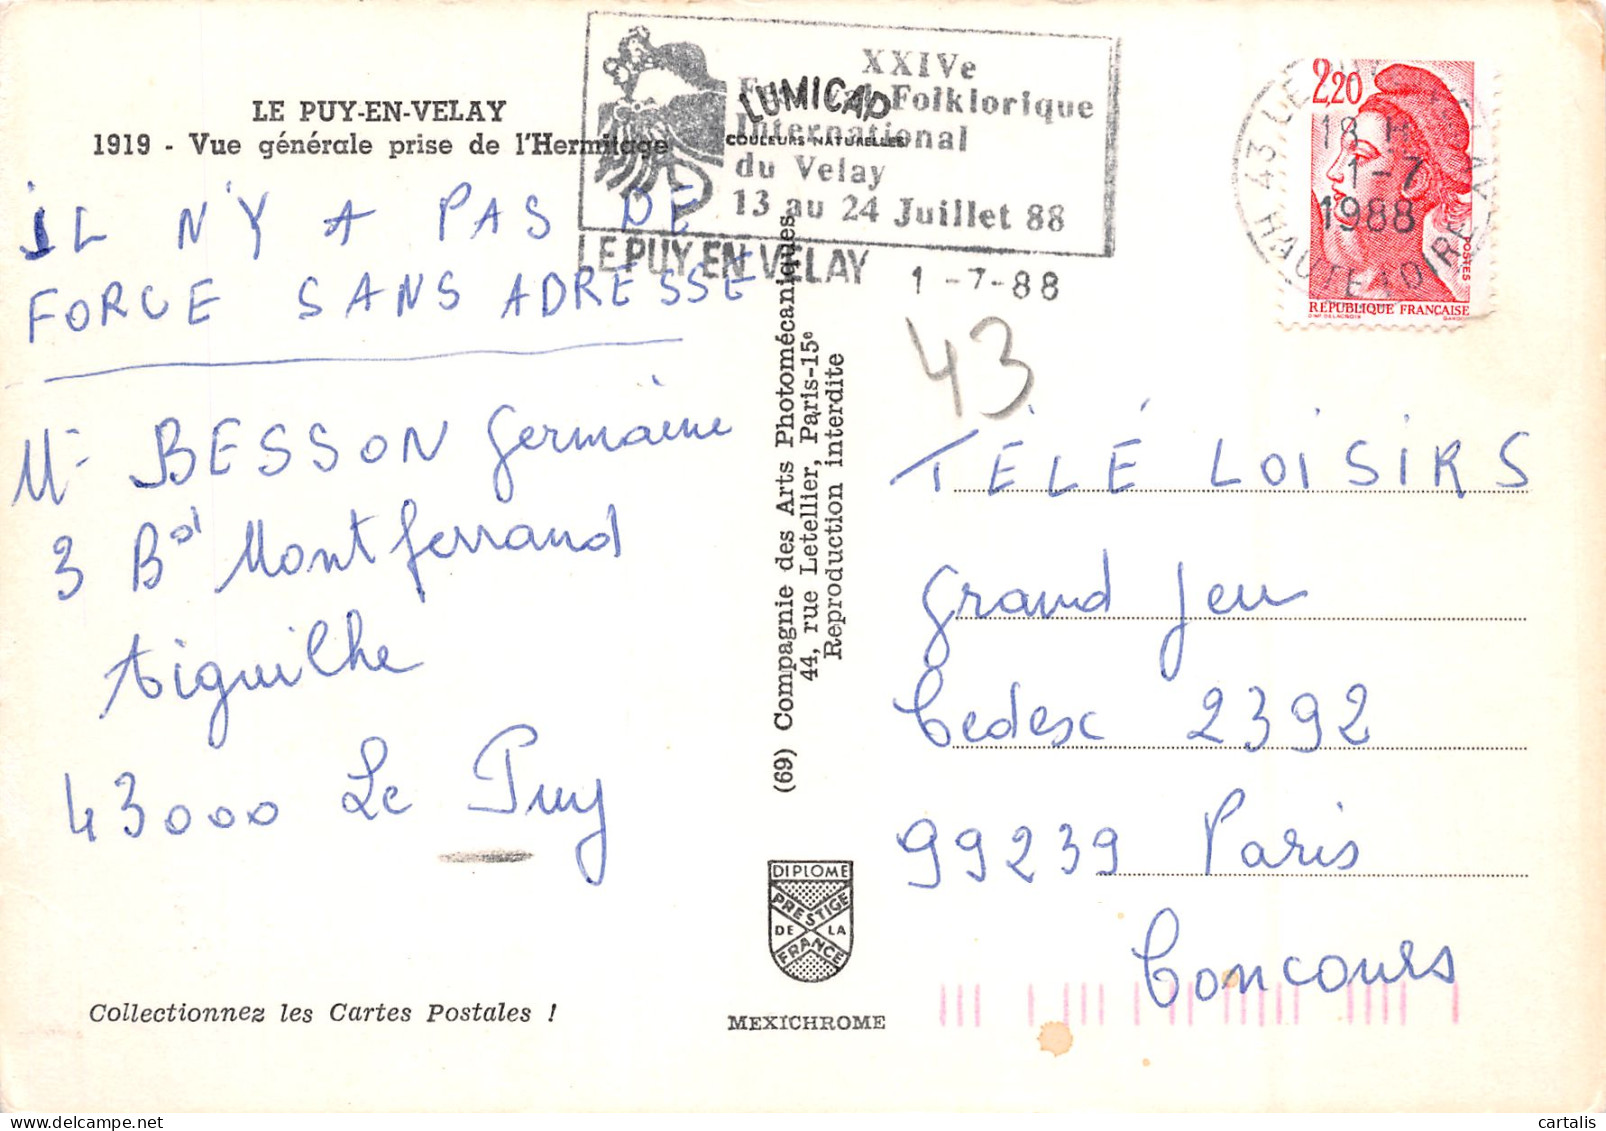 LE PUY-EN-VELAY
1919 - Vue générale prise de l'Hermitage
IL N'Y A PAS DE
FORCE SANS ADRESSE
BESSON Germaine
3 Bd Montferrand
Aiguilhe
43000 Le Puy
Collectionnez les Cartes Postales !
XXIVe
Folklorique
International
du Velay
13 au 24 Juillet 88
LE PUY EN VELAY 1-7-88
LUMICAP
COULEURS NATURELLES
(69) Compagnie des Arts Photomécaniques
44, rue Letellier, Paris-15e
Reproduction interdite
DIPLOME
PRESTIGE
DE LA
FRANCE
MEXICHROME
2,20
POSTES
REPUBLIQUE FRANÇAISE
18 H
1-7
1988
43
HAUTE LOIRE
43
TÉLÉ LOISIRS
Grand Jeu
Cedex 2392
99239 Paris
Concours
cartalis